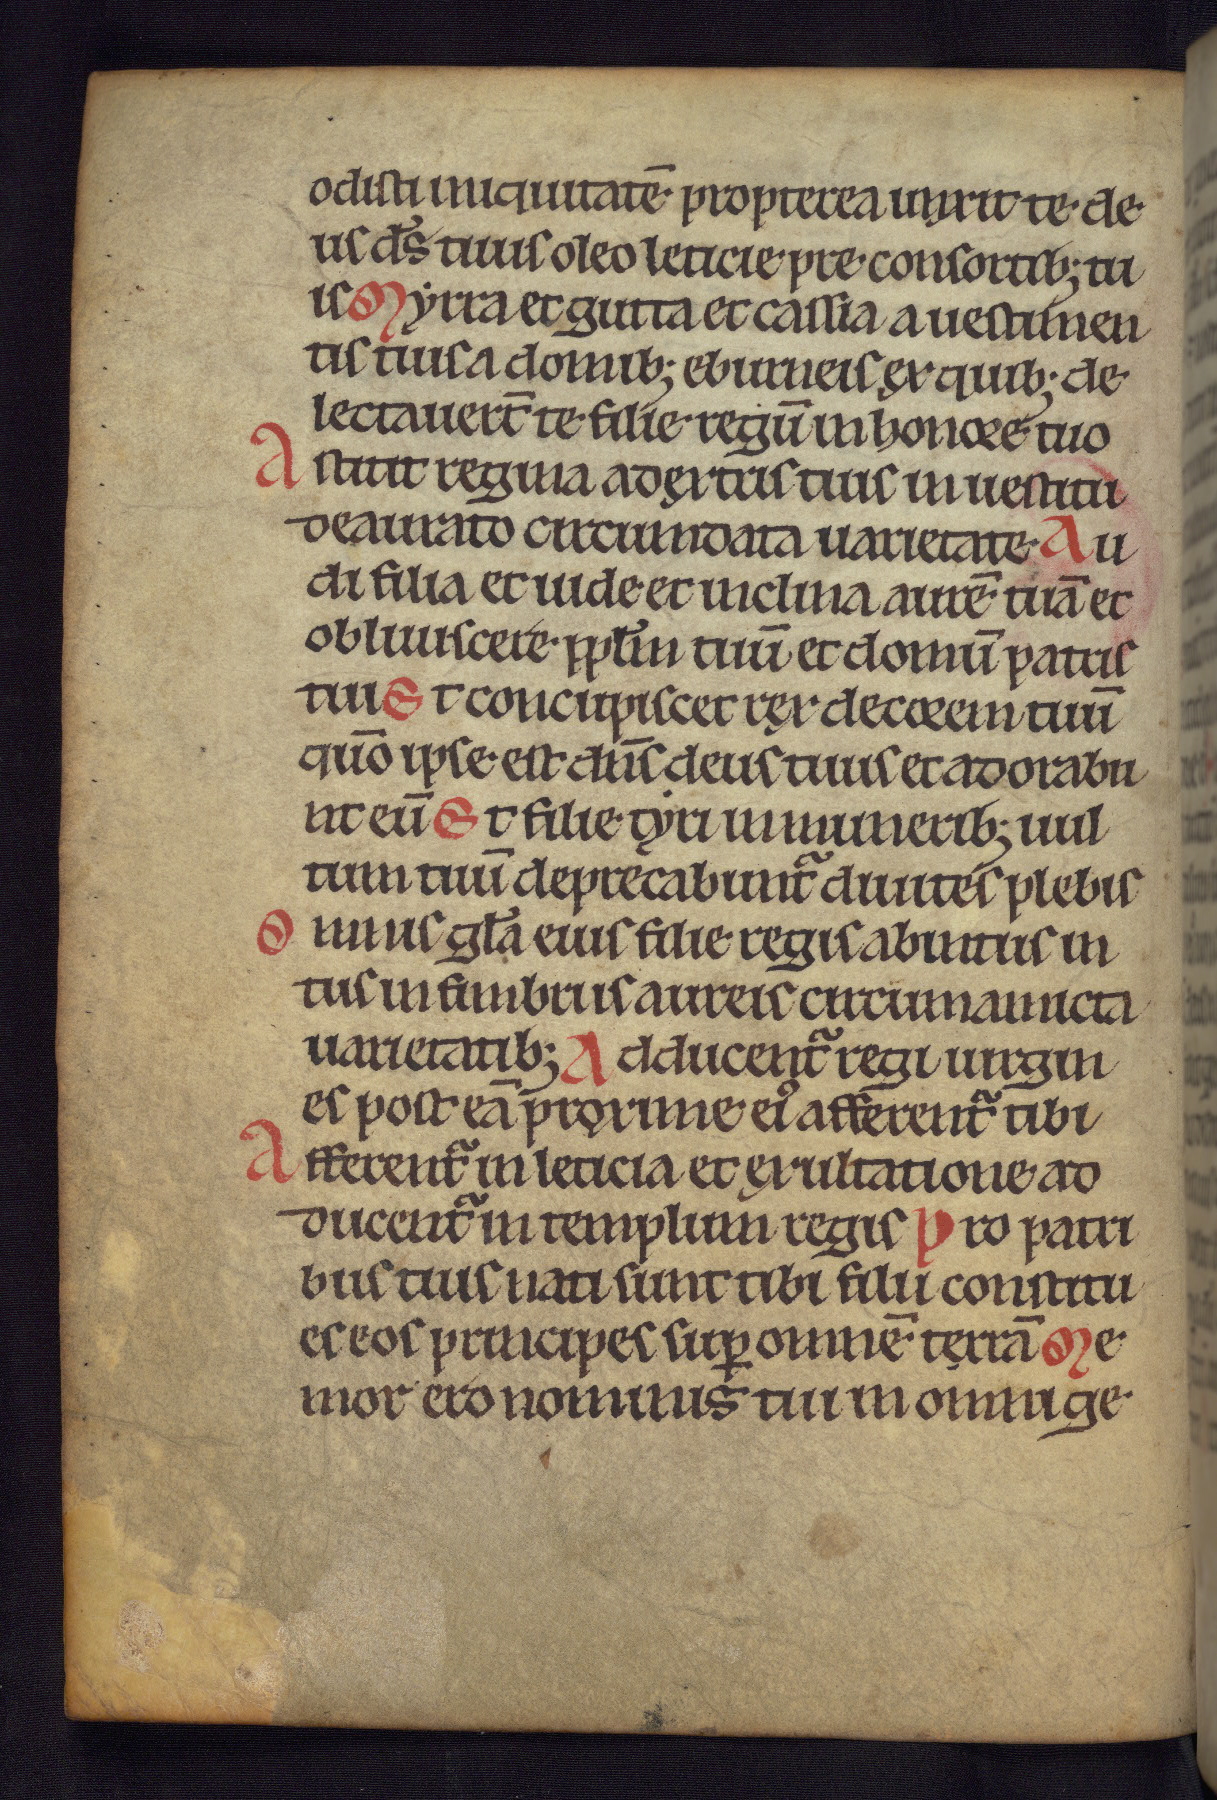 odisti iniquitatē propterea unxit te de
us ds̄ tuus oleo leticie pre consortib; tu
is Myrra et gutta et cassia a uestimen
tis tuis a domib; eburneis ex quib; de
lectauert̄ te filie regū in honore tuo
Astitit regina a dextris tuis in uestitu
deaurato circumdata uarietate Au
di filia et uide et inclina aurē tuā et
obliuiscere pplm̄ tuū et domū patris
tui Et concupiscet rex decorem tuū
qūo ipse est dn̄s deus tuus et adorabu
nt eū Et filie tyri in munerib; uul
tum tuū deprecabunt᷑ diuites plebis
Omnis gl̄a eius filie regis abintus in
tus in fimbriis aureis circumamicta
uarietatib; Adducent᷑ regi uirgin
es post eā proxime eiꝰ afferent᷑ tibi
Afferent᷑ in leticia et exultatione ad
ducent᷑ in templum regis Pro patri
bus tuis nati sunt tibi filii constitu
es eos principes suꝑ omnē terrā Me
mor ero nominis tui in omni ge